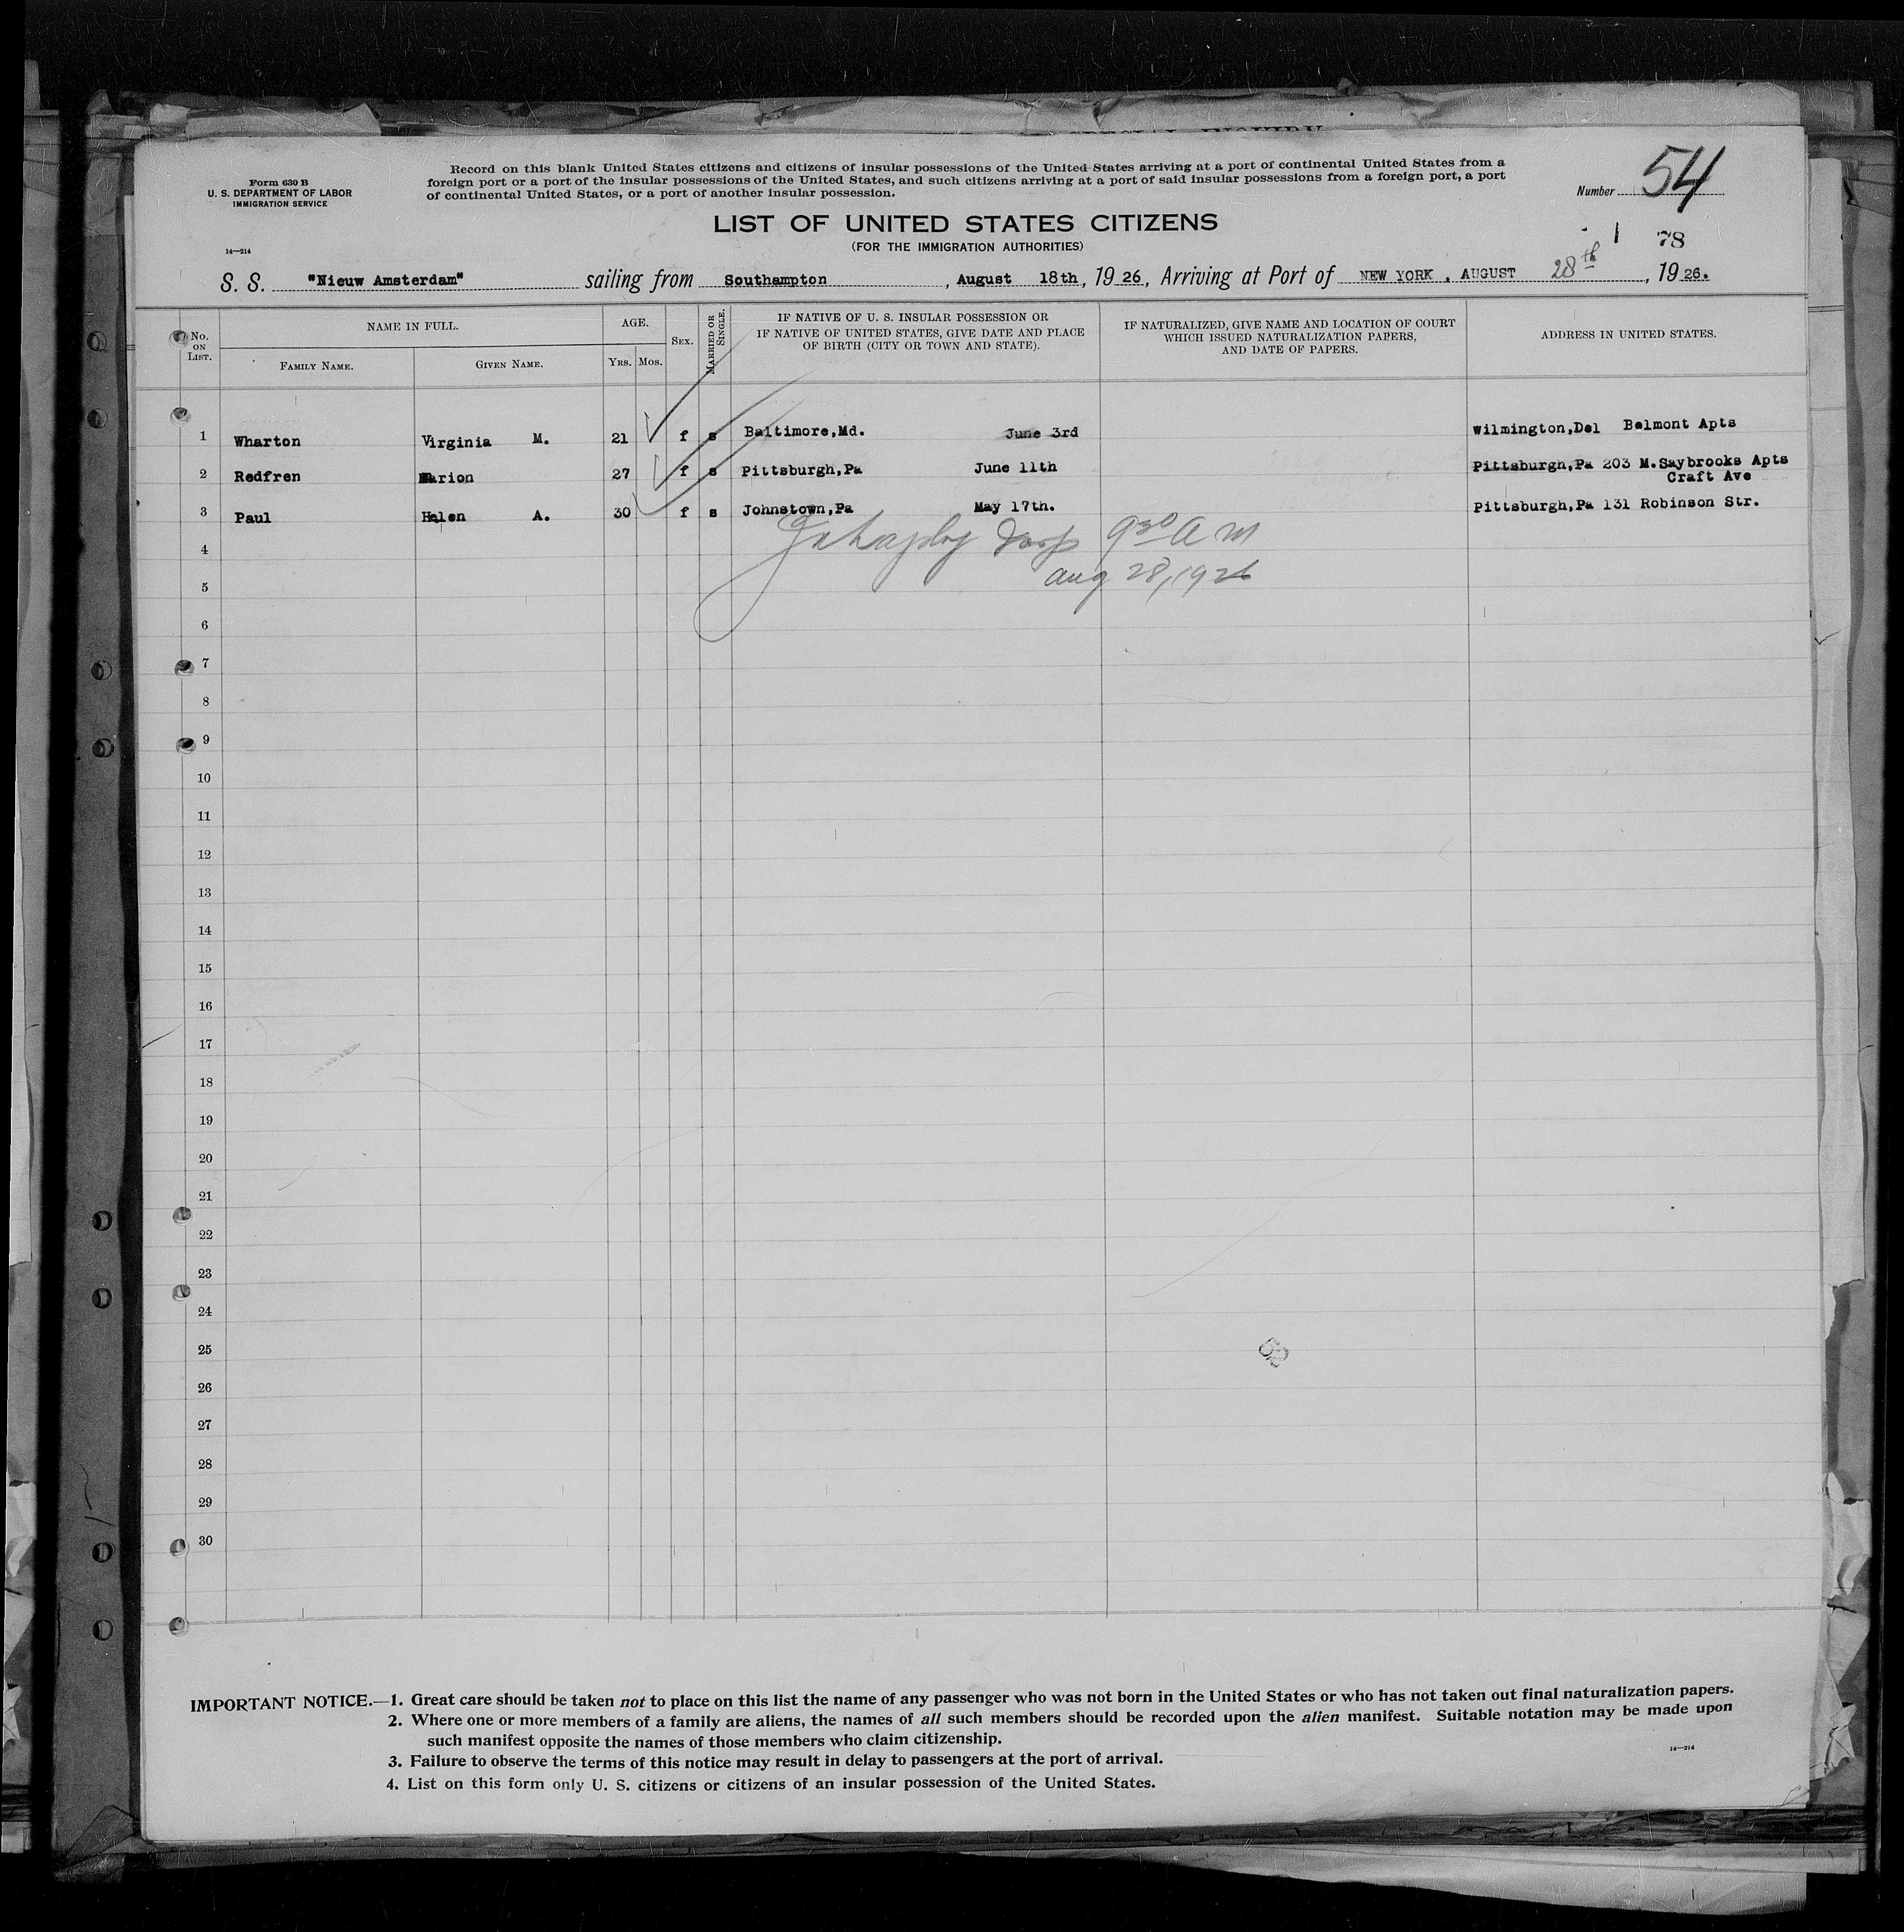 Form 630 B
U. S. DEPARTMENT OF LABOR
IMMIGRATION SERVICE
14—214
Record on this blank United States citizens and citizens of insular possessions of the United States arriving at a port of continental United States from a
foreign port or a port of the insular possessions of the United States, and such citizens arriving at a port of said insular possessions from a foreign port, a port
of continental United States, or a port of another insular possession.
Number 54
LIST OF UNITED STATES CITIZENS
(FOR THE IMMIGRATION AUTHORITIES)
1 78
S. S. "Nieuw Amsterdam" sailing from Southampton, August 18th, 1926, Arriving at Port of NEW YORK, AUGUST 28th, 1926.
No. ON LIST.
NAME IN FULL.
FAMILY NAME. GIVEN NAME.
AGE.
YRS. MOS.
SEX.
MARRIED OR SINGLE.
IF NATIVE OF U. S. INSULAR POSSESSION OR
IF NATIVE OF UNITED STATES, GIVE DATE AND PLACE
OF BIRTH (CITY OR TOWN AND STATE).
IF NATURALIZED, GIVE NAME AND LOCATION OF COURT
WHICH ISSUED NATURALIZATION PAPERS,
AND DATE OF PAPERS.
ADDRESS IN UNITED STATES.
1 Wharton Virginia M. 21 f s Baltimore,Md. June 3rd Wilmington,Del Belmont Apts
2 Redfren Marion 27 f s Pittsburgh,Pa June 11th Pittsburgh,Pa 203 M.Saybrooks Apts
Craft Ave
3 Paul Helen A. 30 f s Johnstown,Pa May 17th. Pittsburgh,Pa 131 Robinson Str.
4 Insp 9 30 a m
5 aug 28, 1926
6
7
8
9
10
11
12
13
14
15
16
17
18
19
20
21
22
23
24
25
26
27
28
29
30
IMPORTANT NOTICE.—1. Great care should be taken not to place on this list the name of any passenger who was not born in the United States or who has not taken out final naturalization papers.
2. Where one or more members of a family are aliens, the names of all such members should be recorded upon the alien manifest. Suitable notation may be made upon
such manifest opposite the names of those members who claim citizenship.
3. Failure to observe the terms of this notice may result in delay to passengers at the port of arrival.
4. List on this form only U. S. citizens or citizens of an insular possession of the United States.
14—214